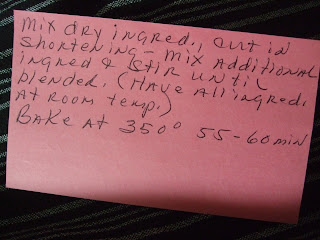 Mix dry ingred., cut in
shortening - mix additional
ingred & stir until
blended. (Have all ingred.
at room temp.)
Bake at 350° 55-60 min